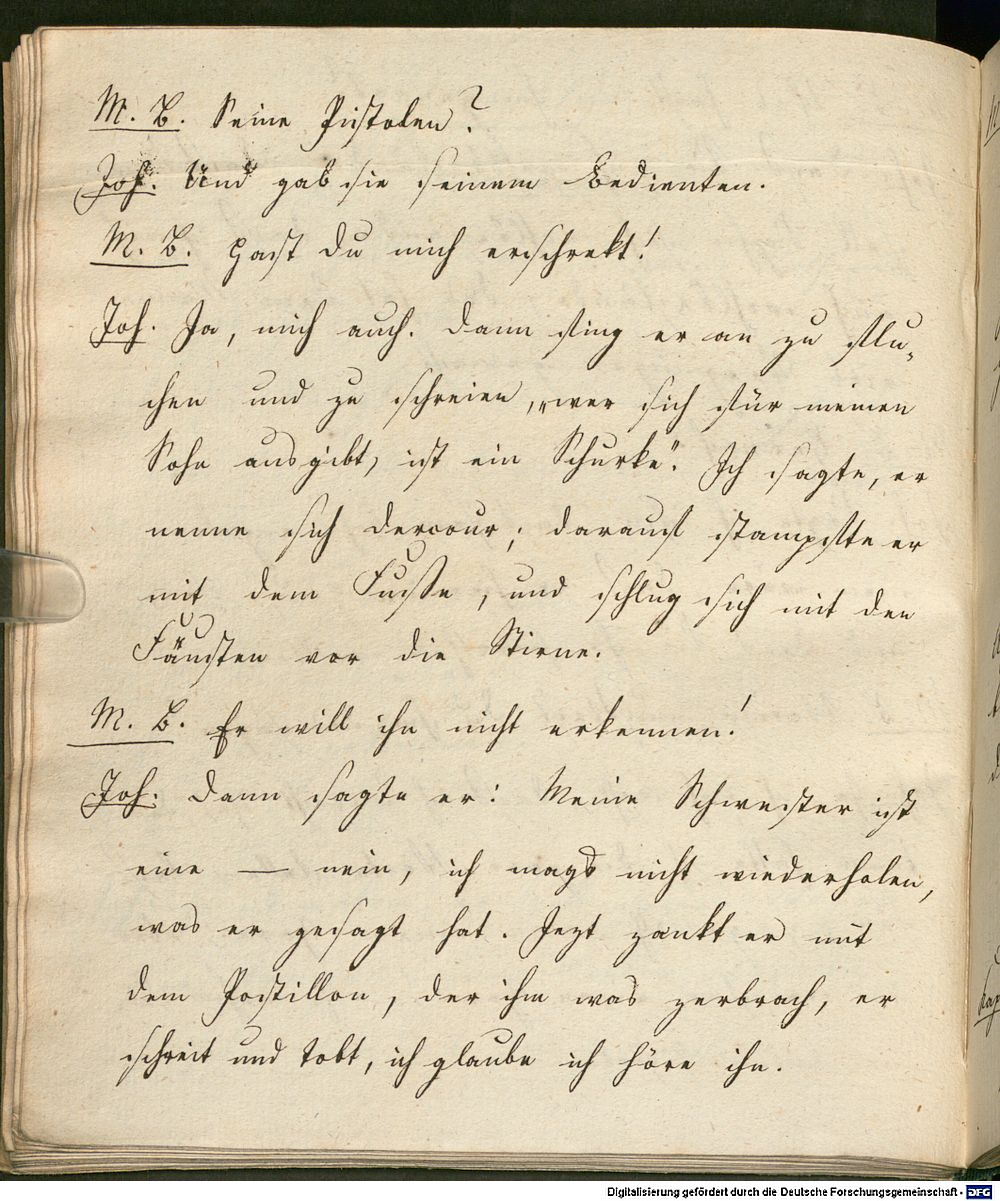 M. B. Seine Pistolen?
Joh. Und gab sie seinem Bedienten.
M. B. Hast du mich erschrekt!
Joh. Ja, mich auch. Dann fing er an zu flu„
chen und zu schreien, „wer sich für meinen
Sohn ausgibt, ist ein Schurke“. Ich sagte, er
nenne sich Dercour; darauf stampfte er
mit dem Fuße, und schlug sich mit den
Fäusten vor die Stirne.
M. B. Er will ihn nicht erkennen!
Joh. Dann sagte er: Meine Schwester ist
eine — nein, ich mags nicht wiederholen,
was er gesagt hat. Jezt zankt er mit
dem Postillon, der ihm was zerbrach, er
schreit und tobt, ich glaube ich höre ihn.
Digitalisierung gefördert durch die Deutsche Forschungsgemeinschaft - DFG